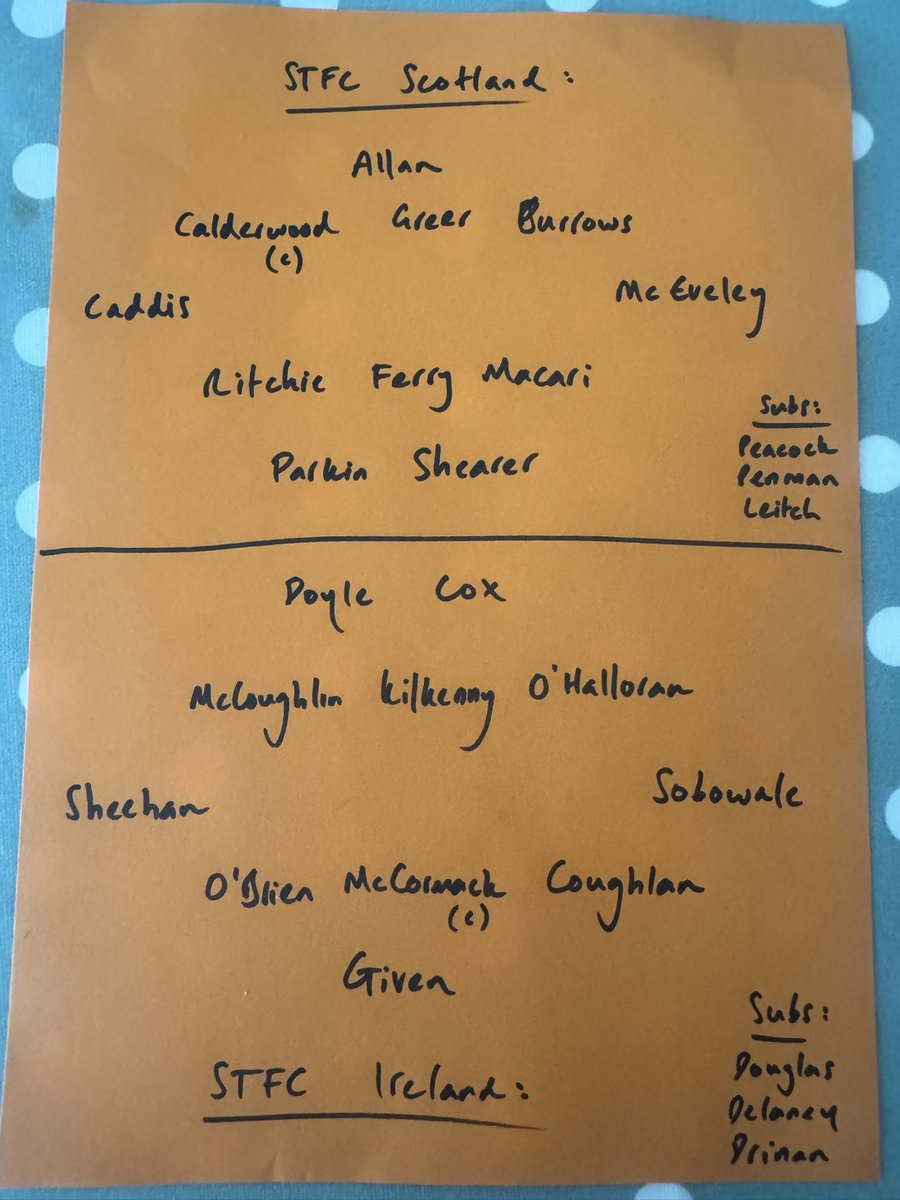 STFC Scotland:
Allan
Calderwood Greer Burrows
(c)
Caddis McEveley
Ritchie Ferry Macari
Parkin Shearer
Subs:
Peacock
Penman
Leitch
Doyle Cox
McLoughlin Kilkenny O'Halloran
Sheehan Sobowale
O'Brien McCormack Coughlan
(c)
Given
STFC Ireland:
Subs:
Douglas
Delaney
Drinan